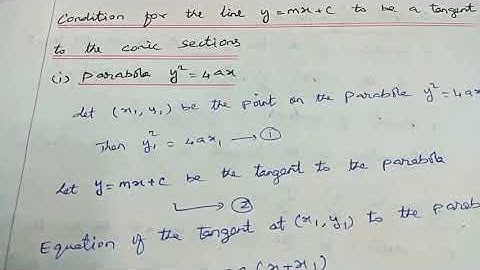 Condition for the line y=mx+c to be a tangent
to the conic sections
(i) Parabola y² = 4ax
Let (x₁, y₁) be the point on the Parabola y² = 4ax
Then y₁² = 4ax₁ → ①
Let y=mx+c be the tangent to the parabola
→ ②
Equation of the tangent at (x₁, y₁) to the parab
(x+x₁)